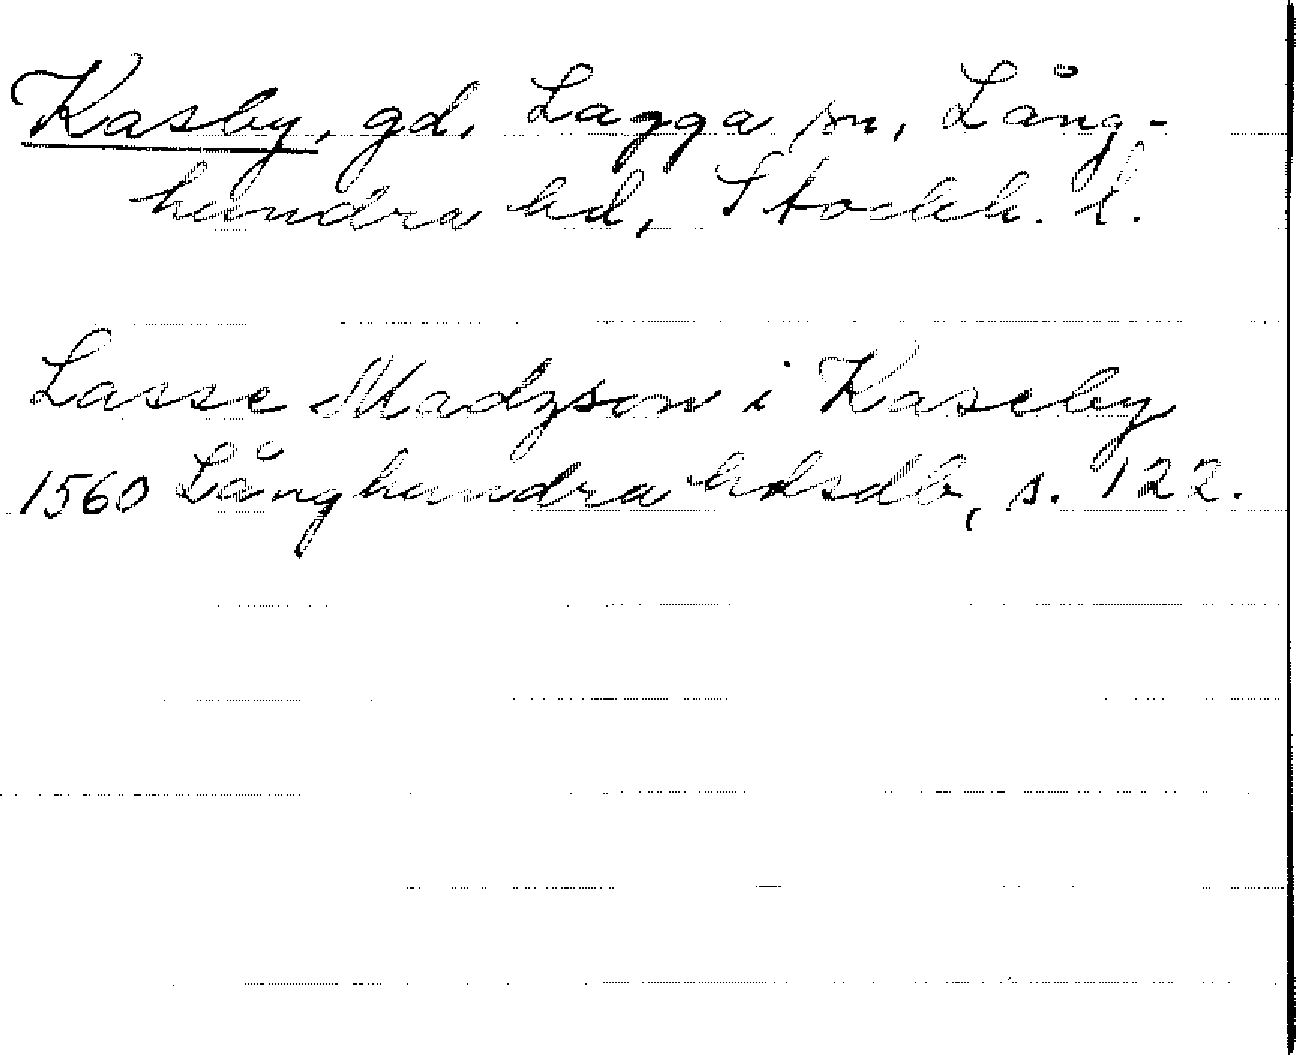 Kasby, gd, Lagga sn, Lång-
hundra hd, Stockh. l.
Lasse Madzson i Kaseby
1560 Långhundra hdsdb, s. 122.